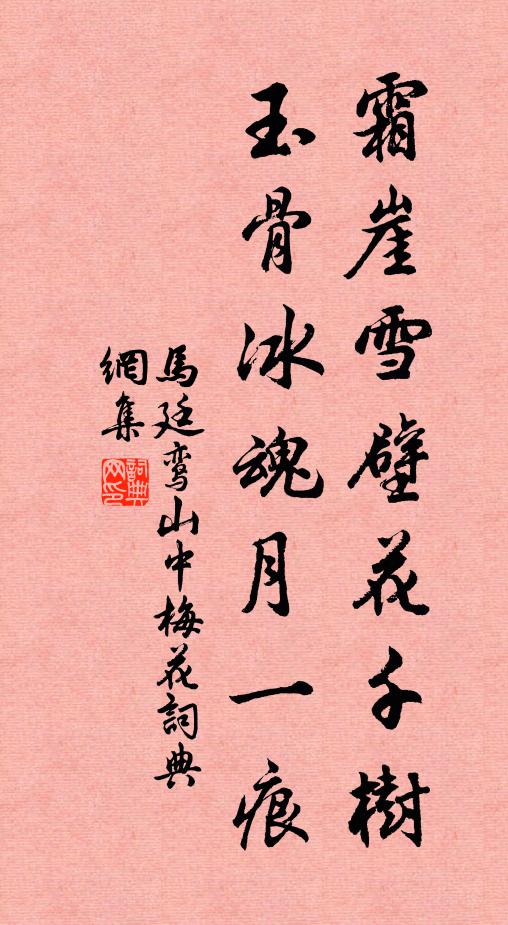 霜崖雪壁花千樹
玉骨冰魂月一痕
馬廷鸾山中梅花詞典
網集
詞典网印